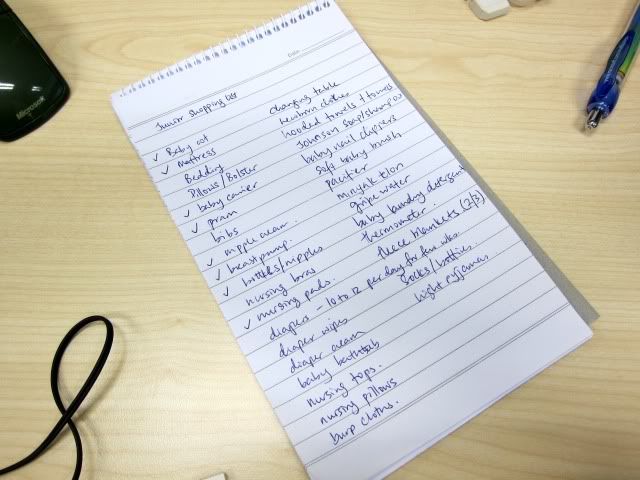 Microsoft
Date
Junior shopping list
✓ Baby cot
✓ Mattress
Bedding
Pillows / Bolster
✓ baby carrier
✓ pram
bibs
✓ nipple cream.
✓ breastpump.
✓ bottles/nipples
nursing bras
✓ nursing pads.
diapers – 10 to 12 per day for few wks.
diaper wipes
diaper cream
baby bathtub
nursing tops.
nursing pillows
burp cloths.
changing table
newborn clothes
hooded towels +
Johnson soap/shampoo
baby nail clippers
soft baby brush
pacifier
minyak telon
gripe water
baby laundry detergent
thermometer.
fleece blankets (2/3)
socks / botties.
night pyjamas